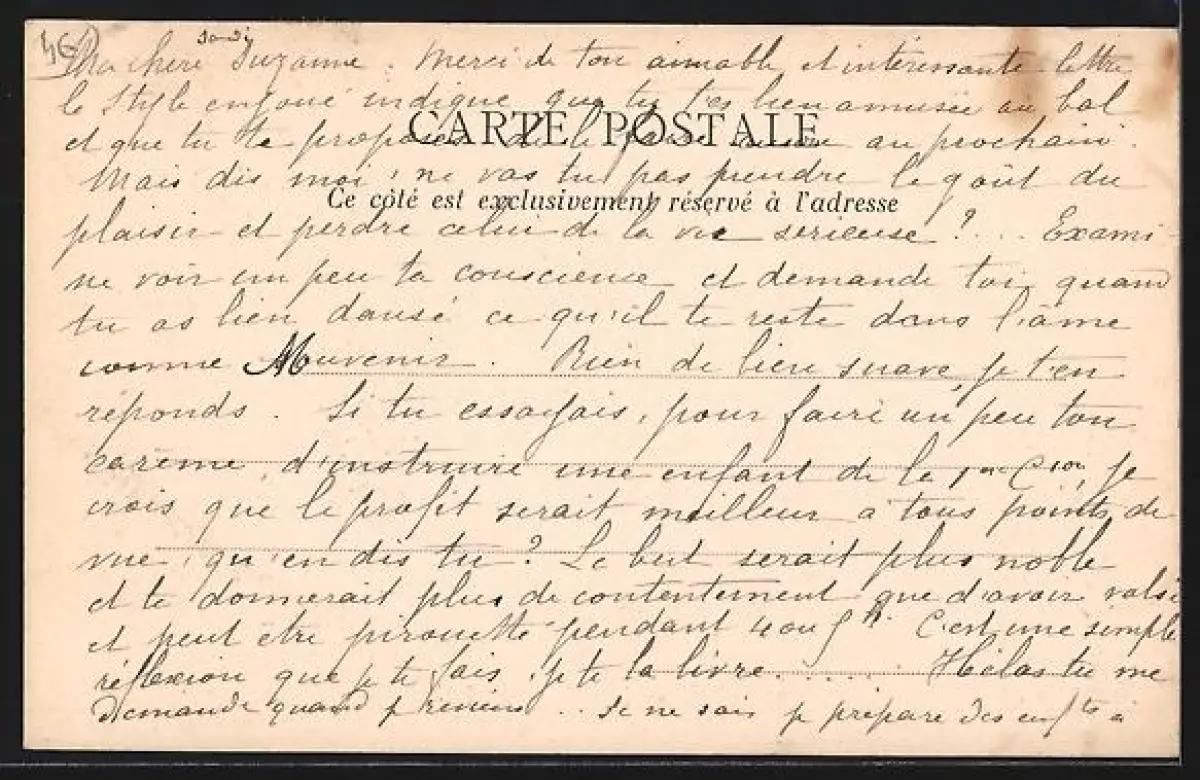 Samedi
Ma chère Suzanne. Merci de ton aimable et intéressante lettre
le style enjoué indique que tu t'es bien amusée au bal
et que tu te proposes de le faire encore au prochain.
CARTE POSTALE
Mais dis moi, ne vas tu pas prendre le goût du
Ce côté est exclusivement réservé à l'adresse
plaisir et perdre celui de la vie sérieuse ? ... Exami-
ne voir un peu ta conscience et demande toi quand
tu as bien dansé ce qu'il te reste dans l'âme
comme Souvenir. Rien de bien suave, je t'en
réponds. Si tu essayais, pour faire un peu ton
carême, d'instruire une enfant de la 1re Cion, je
crois que le profit serait meilleur à tous points de
vue, qu'en dis tu ? Le but serait plus noble
et te donnerait plus de contentement que d'avoir valsé
et peut être pirouetté pendant 4 ou 5 h. C'est une simple
réflexion que je te fais, je te la livre ..... Hélas tu me
demande quand je reviens .. Je ne sais je prépare des enfts à